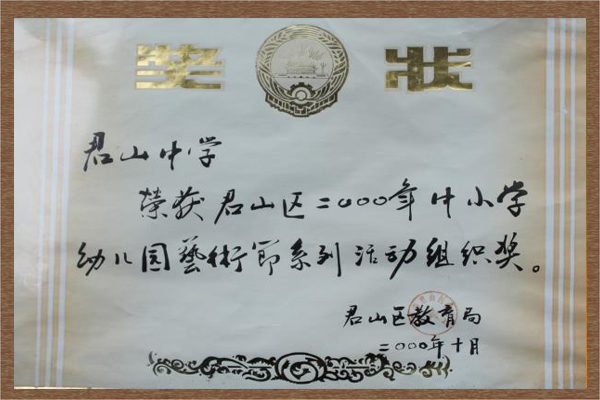 奖状
君山中学
荣获君山区二000年中小学
幼儿园藝術節系列活动组织奖。
君山区教育局
二000年十月